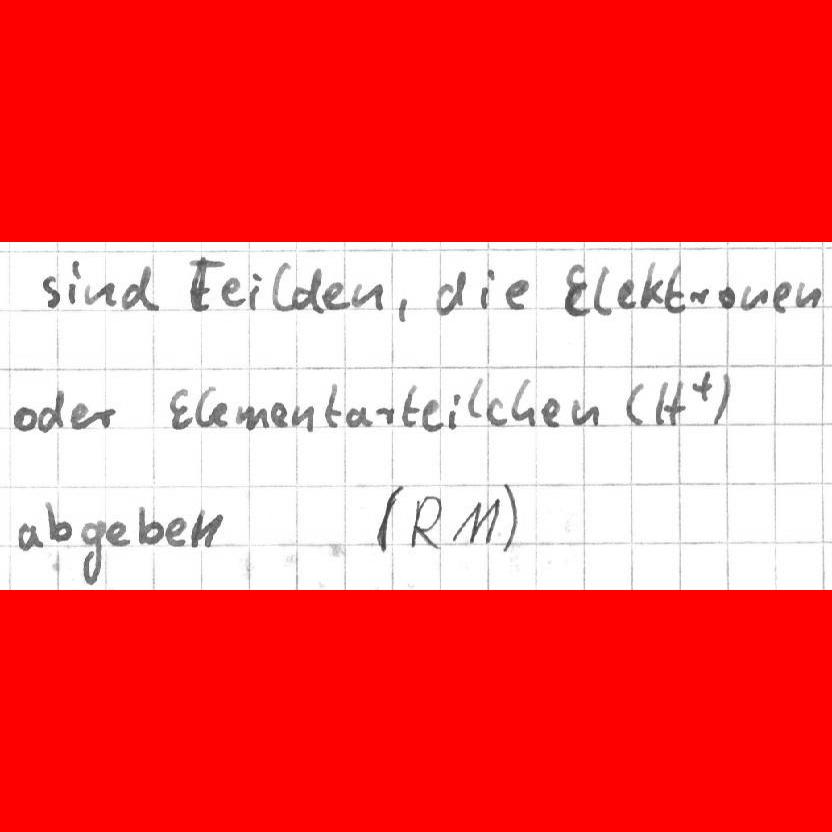 sind Teilden, die Elektronen
oder Elementarteilchen (H⁺)
abgeben (RM)